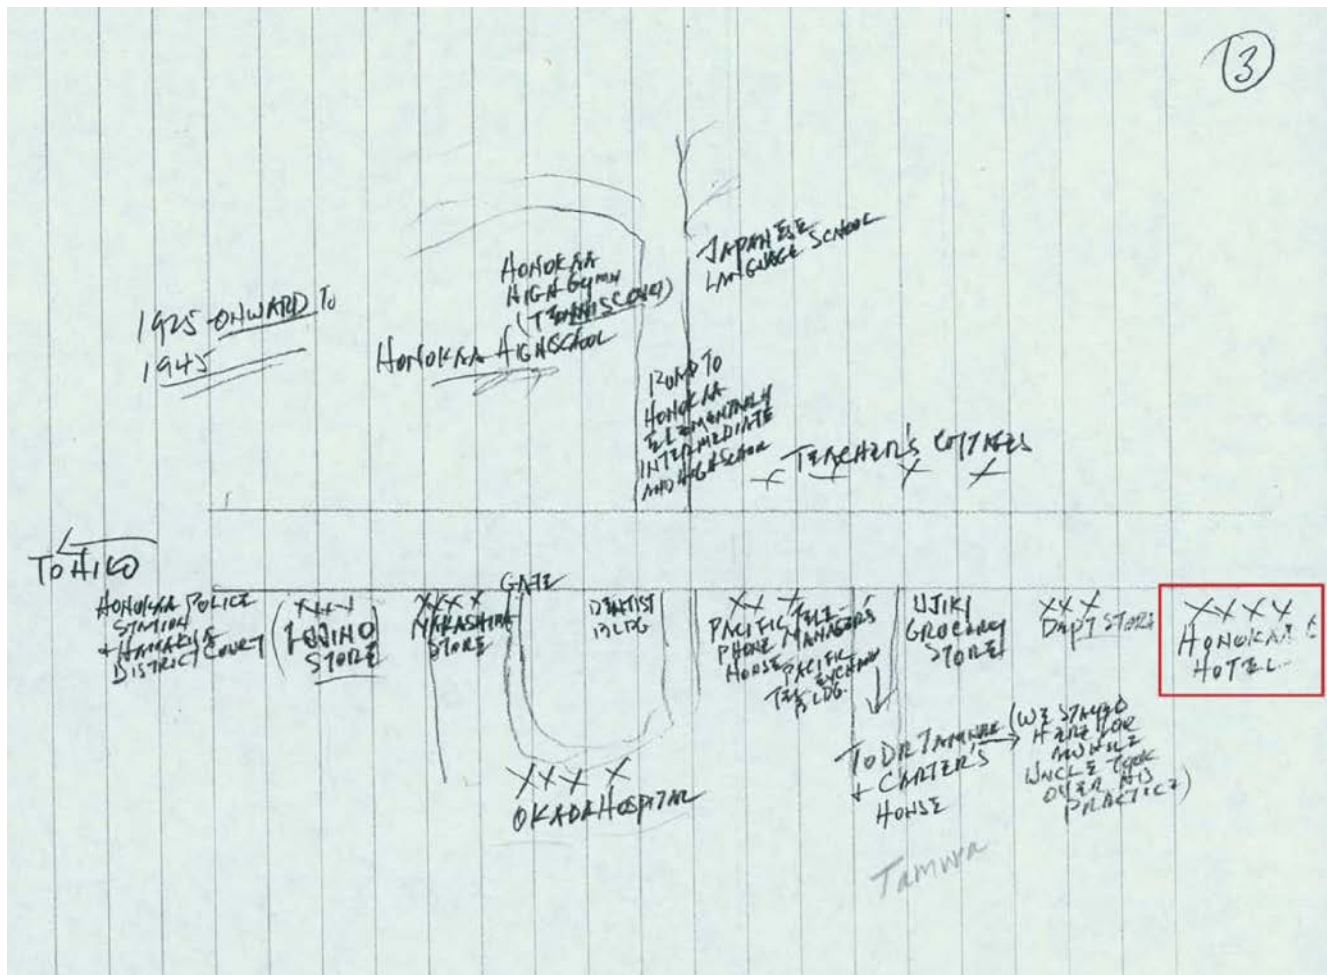 3
JAPANESE
LANGUAGE SCHOOL
HONOKAA
HIGH GYMN
(TENNIS COURT)
HONOKAA HIGHSCHOOL
1925 ONWARD TO
1945
ROAD TO
HONOKAA
ELEMENTARY
INTERMEDIATE
AND HIGHSCHOOL
TEACHER'S COTTAGES
TO HILO
HONOKAA POLICE
STATION
+ HAMAKUA
DISTRICT COURT
STORE
NAKASHIMA
STORE
GATE
DENTIST
BLDG
PACIFIC TELE-
PHONE MANAGER'S
HOUSE PACIFIC
TEL EXCHANGE
BLDG.
UJIKI
GROCERY
STORE
DEPT STORE
HONOKAA
HOTEL
OKADA HOSPITAL
TO DR TAMURA
+ CARTER'S
HOUSE
(WE STAYED
HERE FOR
AWHILE
UNCLE TOOK
OVER HIS
PRACTICE)
Tamura